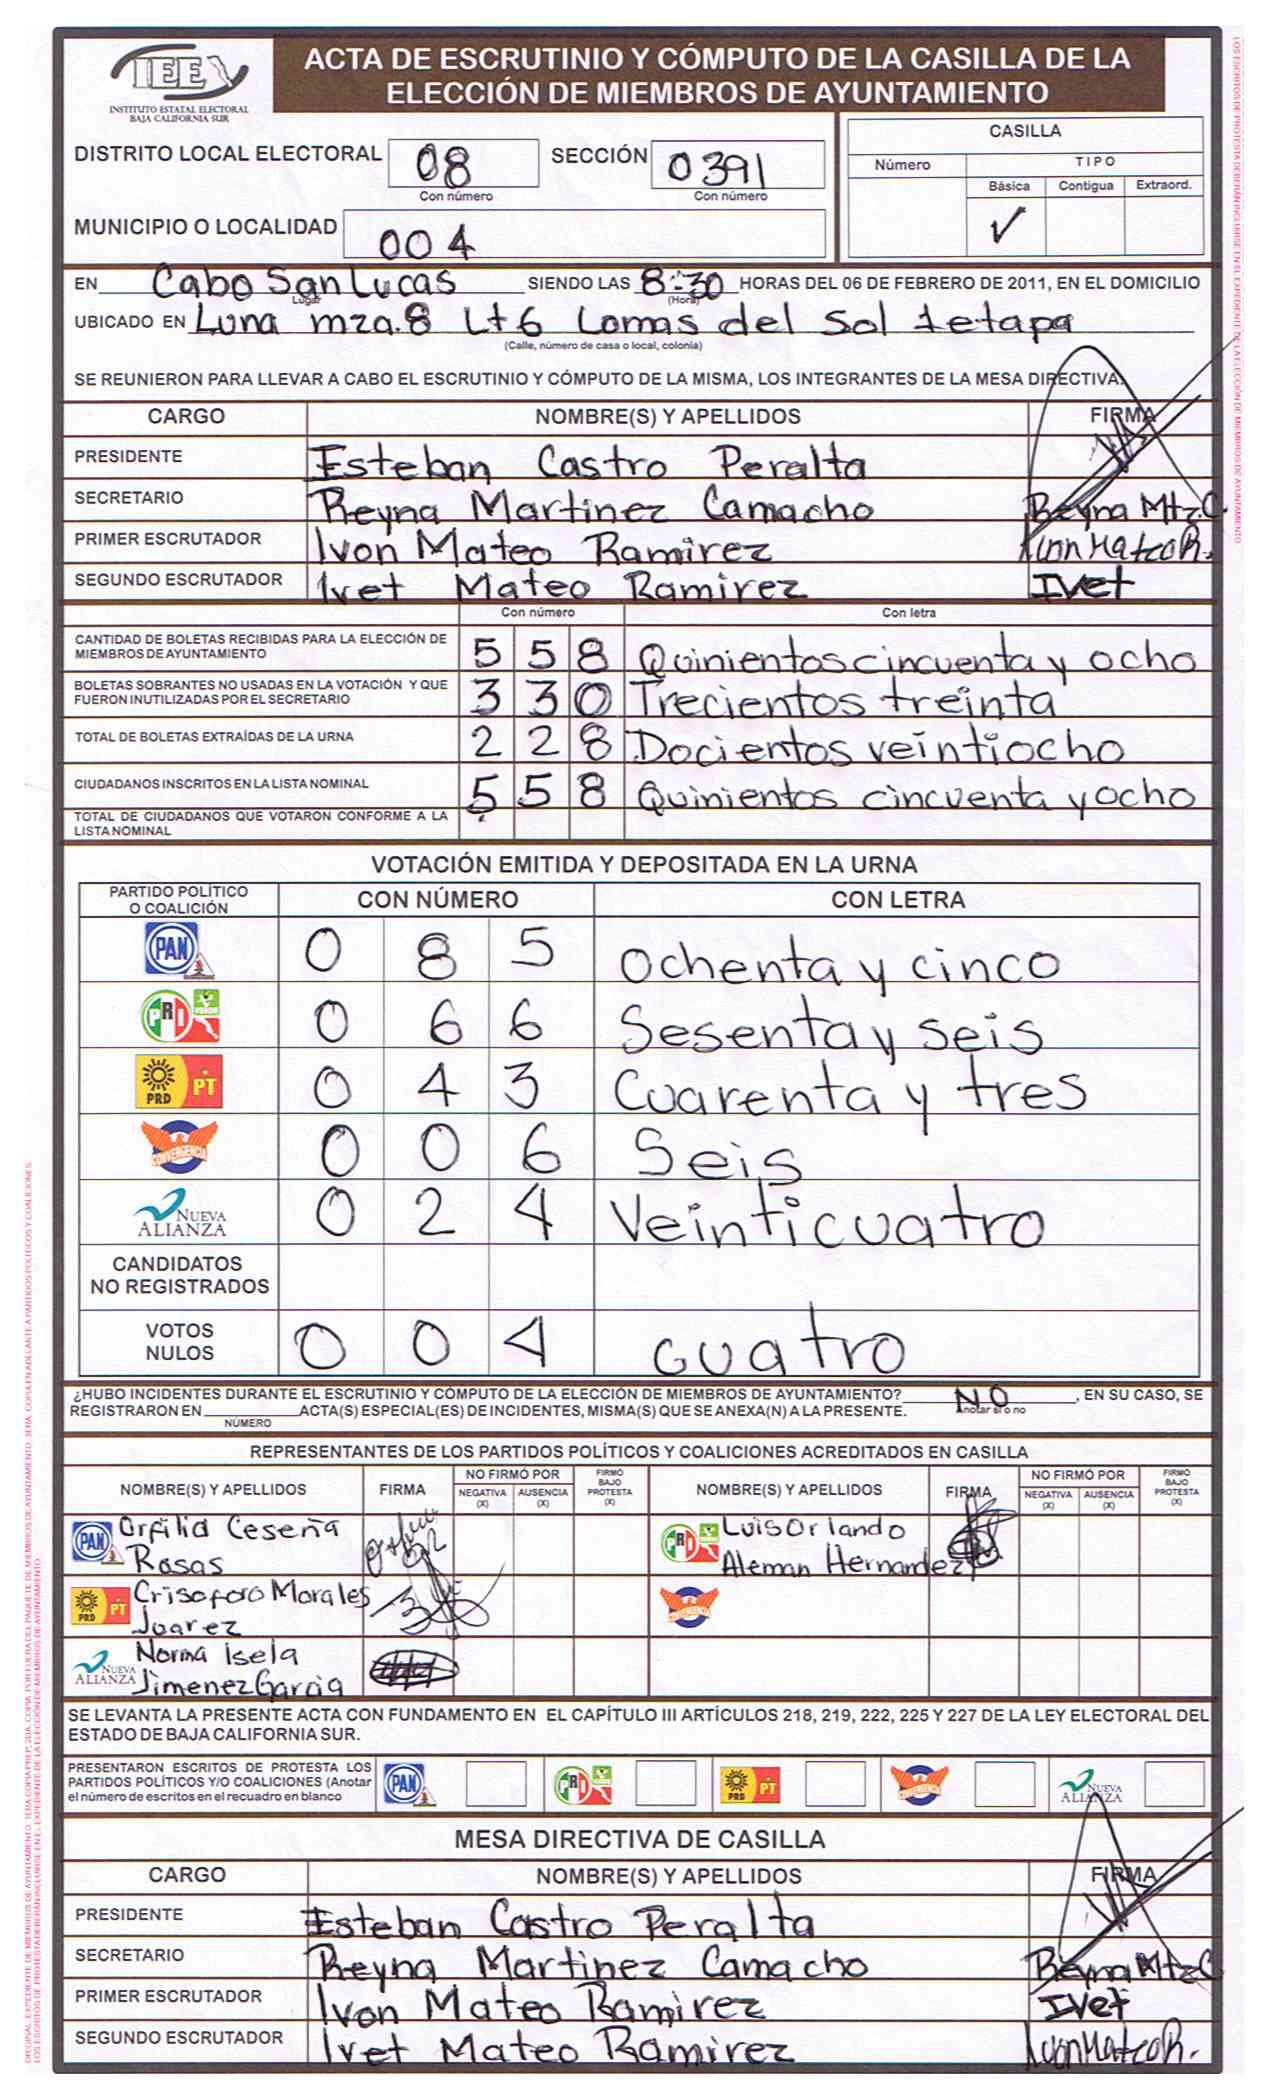 IEE
INSTITUTO ESTATAL ELECTORAL
BAJA CALIFORNIA SUR
ACTA DE ESCRUTINIO Y CÓMPUTO DE LA CASILLA DE LA
ELECCIÓN DE MIEMBROS DE AYUNTAMIENTO
DISTRITO LOCAL ELECTORAL 08 SECCIÓN 0391
Con número Con número
MUNICIPIO O LOCALIDAD 004
CASILLA
Número TIPO
Básica Contigua Extraord.
✓
EN Cabo San Lucas SIENDO LAS 8:30 HORAS DEL 06 DE FEBRERO DE 2011, EN EL DOMICILIO
Lugar (Hora)
UBICADO EN Luna mza.8 Lt6 Lomas del Sol 1etapa
(Calle, número de casa o local, colonia)
SE REUNIERON PARA LLEVAR A CABO EL ESCRUTINIO Y CÓMPUTO DE LA MISMA, LOS INTEGRANTES DE LA MESA DIRECTIVA.
CARGO NOMBRE(S) Y APELLIDOS FIRMA
PRESIDENTE Esteban Castro Peralta
SECRETARIO Reyna Martinez Camacho Reyna Mtz.C.
PRIMER ESCRUTADOR Ivon Mateo Ramirez Ivon Mateo R.
SEGUNDO ESCRUTADOR Ivet Mateo Ramirez Ivet
Con número Con letra
CANTIDAD DE BOLETAS RECIBIDAS PARA LA ELECCIÓN DE
MIEMBROS DE AYUNTAMIENTO 5 5 8 Quinientos cincuenta y ocho
BOLETAS SOBRANTES NO USADAS EN LA VOTACIÓN Y QUE
FUERON INUTILIZADAS POR EL SECRETARIO 3 3 0 Trecientos treinta
TOTAL DE BOLETAS EXTRAÍDAS DE LA URNA 2 2 8 Docientos veintiocho
CIUDADANOS INSCRITOS EN LA LISTA NOMINAL 5 5 8 Quinientos cincuenta y ocho
TOTAL DE CIUDADANOS QUE VOTARON CONFORME A LA
LISTA NOMINAL
VOTACIÓN EMITIDA Y DEPOSITADA EN LA URNA
PARTIDO POLÍTICO
O COALICIÓN CON NÚMERO CON LETRA
PAN 0 8 5 Ochenta y cinco
PRI VERDE 0 6 6 Sesenta y seis
PRD PT 0 4 3 Cuarenta y tres
CONVERGENCIA 0 0 6 Seis
NUEVA ALIANZA 0 2 4 Veinticuatro
CANDIDATOS
NO REGISTRADOS
VOTOS
NULOS 0 0 4 cuatro
¿HUBO INCIDENTES DURANTE EL ESCRUTINIO Y CÓMPUTO DE LA ELECCIÓN DE MIEMBROS DE AYUNTAMIENTO? NO , EN SU CASO, SE
Anotar si o no
REGISTRARON EN ACTA(S) ESPECIAL(ES) DE INCIDENTES, MISMA(S) QUE SE ANEXA(N) A LA PRESENTE.
NÚMERO
REPRESENTANTES DE LOS PARTIDOS POLÍTICOS Y COALICIONES ACREDITADOS EN CASILLA
NOMBRE(S) Y APELLIDOS FIRMA NO FIRMÓ POR NEGATIVA (X) AUSENCIA (X) FIRMÓ BAJO PROTESTA (X) NOMBRE(S) Y APELLIDOS FIRMA NO FIRMÓ POR NEGATIVA (X) AUSENCIA (X) FIRMÓ BAJO PROTESTA (X)
PAN Orfilia Ceseña
Rosas
PRI Luis Orlando
Aleman Hernandez
PRD PT Crisoforo Morales
Juarez
CONVERGENCIA
NUEVA ALIANZA Norma Isela
Jimenez Garcia
SE LEVANTA LA PRESENTE ACTA CON FUNDAMENTO EN EL CAPÍTULO III ARTÍCULOS 218, 219, 222, 225 Y 227 DE LA LEY ELECTORAL DEL
ESTADO DE BAJA CALIFORNIA SUR.
PRESENTARON ESCRITOS DE PROTESTA LOS
PARTIDOS POLÍTICOS Y/O COALICIONES (Anotar
el número de escritos en el recuadro en blanco
PAN PRI PRD PT CONVERGENCIA NUEVA ALIANZA
MESA DIRECTIVA DE CASILLA
CARGO NOMBRE(S) Y APELLIDOS FIRMA
PRESIDENTE Esteban Castro Peralta
SECRETARIO Reyna Martinez Camacho Reyna Mtz C
PRIMER ESCRUTADOR Ivon Mateo Ramirez Ivet
SEGUNDO ESCRUTADOR Ivet Mateo Ramirez Ivon Mateo R.
LOS ESCRITOS DE PROTESTA DEBERÁN INCLUIRSE EN EL EXPEDIENTE DE LA ELECCIÓN DE MIEMBROS DE AYUNTAMIENTO